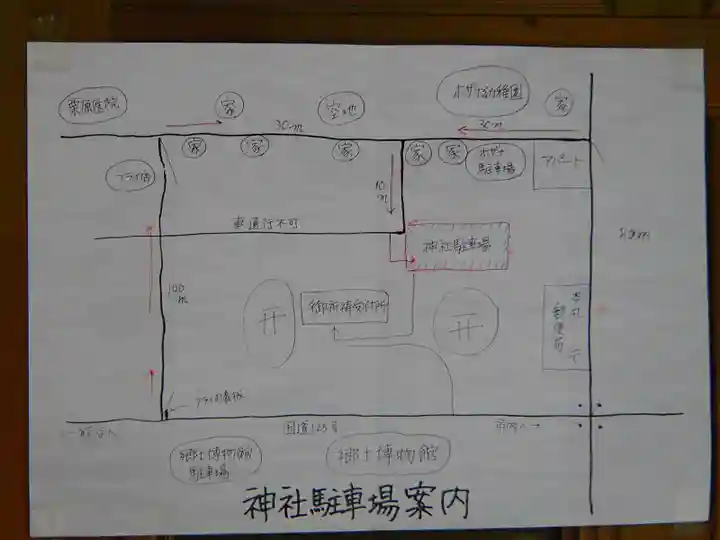 家
空地
ホザナ幼稚園
家
30m
30m
家
家
家
家
家
ホザナ
駐車場
アパート
フライ店
10m
車通行不可
神社駐車場
100m
御祈祷受付所
郵便局
フライの看板
国道125号
郷土博物館
駐車場
郷土博物館
神社駐車場案内